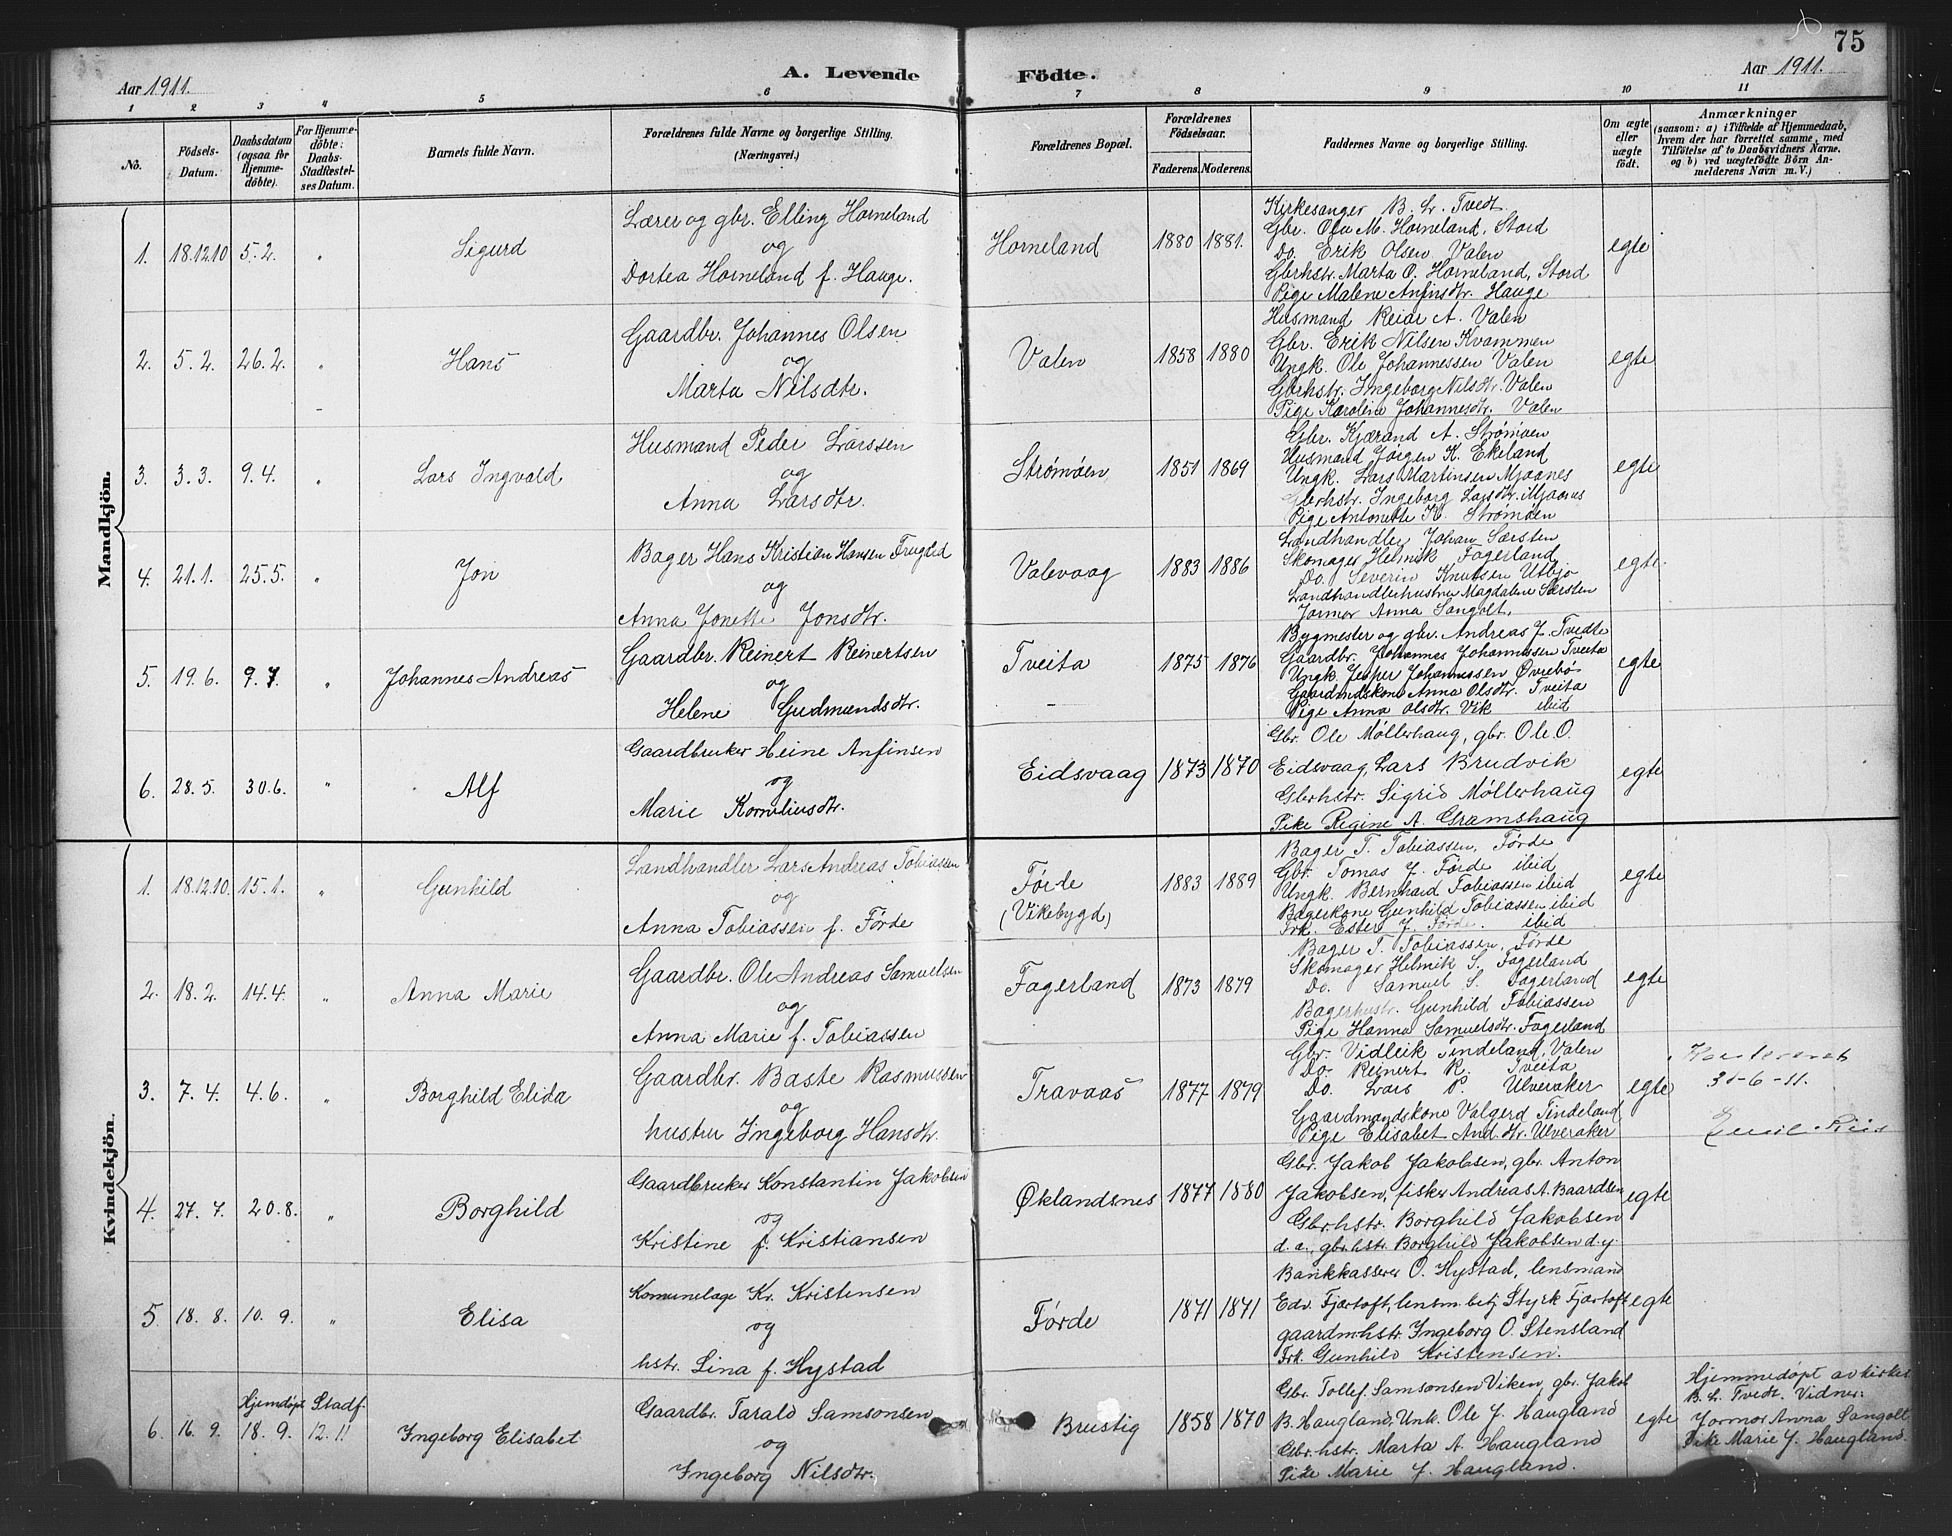 75
Aar 1911.
A. Levende Födte.
Aar 1911.
1 2 3 4 5 6 7 8 9 10 11
No.
Födsels-Datum.
Daabsdatum (ogsaa for Hjemme-döbte).
For Hjemme-döbte: Daabs-Stadfestel-ses Datum.
Barnets fulde Navn.
Forældrenes fulde Navne og borgerlige Stilling. (Næringsvei.)
Forældrenes Bopæl.
Forældrenes Födselsaar.
Faderens. Moderens.
Faddernes Navne og borgerlige Stilling.
Om ægte eller uægte födt.
Anmærkninger
(saasom: a) i Tilfælde af Hjemmedaab,
hvem der har forrettet samme, med
Tilföielse af to Daabsvidners Navne,
og b) ved uægtefödte Börn An-
melderens Navn m. V.)
Mandkjön.
1. 18.12.10 5.2. " Sigurd
Lærer og gbr. Elling Horneland
og
Dortea Horneland f. Hauge.
Horneland 1880 1881.
Kirkesanger B. L. Tvedt.
Gbr. Ola M. Horneland, Stord
Do. Erik Olsen Valen
Gbrhstr. Marta O. Horneland, Stord
Pige Malene Anfinsdtr. Hauge
egte
2. 5.2. 26.2. " Hans
Gaardbr. Johannes Olsen
og
Marta Nilsdtr.
Valen 1858 1880
Husmand Reiar A. Valen
Gbr. Erik Nilsen Kvammen
Ungk. Ole Johannessen Valen
Gbrhstr. Ingeborg Nilsdtr. Valen
Pige Karoline Johannesdtr. Valen
egte
3. 3.3. 9.4. " Lars Ingvald
Husmand Peder Larssen
og
Anna Larsdtr.
Strømøen 1851 1869
Gbr. Kjærand A. Strømøen
Husmand Jørgen K. Ekeland
Ungk. Lars Martinsen Mjaanes
Gbrhstr. Ingeborg Larsdtr. Mjaanes
Pige Antonette K. Strømøen
egte
4. 21.1. 25.5. " Jon
Bager Hans Kristian Hansen
og
Anna Jonette Jonsdtr.
Valevaag 1883 1886
Landhandler Johan Særsten
Skomager Helmik Fagerland
Do. Severin Knutsen Utbjo
Landhandlerhustru Magdalene Særsten
Jormor Anna Sangolt.
egte.
5. 19.6. 9.7. " Johannes Andreas
Gaardbr. Reinert Reinertsen
og
Helene Gudmundsdtr.
Tveita 1875 1876
Bygmester og gbr. Andreas J. Tvedte
Gaardbr. Johannes Johannessen Tveita
Ungk. Jesper Johannessen Øvrebø
Gaardmdskone Anna Olsdtr. Tveita
Pige Anna Olsdtr. Vik ibid
egte
6. 28.5. 30.6. " Alf
Gaardbruker Heine Anfinsen
og
Marie Korneliusdtr.
Eidsvaag 1873 1870
Gbr. Ole Møllerhaug, gbr. Ole O.
Eidsvaag, Lars Brudvik
Gbrhstr. Sigrid Møllerhaug
Pike Regine A. Gramshaug
egte
Kvindekjön.
1. 18.12.10. 15.1. " Gunhild
Landhandler Lars Andreas Tobiassen
og
Anna Tobiassen f. Førde
Førde
(Vikebygd)
1883 1889
Bager T. Tobiassen, Førde
Gbr. Tomas J. Førde ibid
Ungk. Bernhard Tobiassen ibid
Bagerkone Gunhild Tobiassen ibid
Frk. Ester J. Førde. ibid
egte
2. 18.2. 14.4. " Anna Marie
Gaardbr. Ole Andreas Samuelsen
og
Anna Marie f. Tobiassen
Fagerland 1873 1879
Bager T. Tobiassen, Førde
Skomager Helmik S. Fagerland
Do. Samuel S. Fagerland
Bagerhustr. Gunhild Tobiassen
Pige Hanna Samuelsdtr. Fagerland
egte
3. 7.4. 4.6. " Borghild Elida
Gaardbr. Baste Rasmussen
og
hustru Ingeborg Hansdtr.
Travaas 1877 1879
Gbr. Vidleik Tindeland, Valen
Do. Reinert R. Tveita
Do. Lars P. Ulveraker
Gaardmandskone Valgerd Tindeland
Pige Elisabet And.dtr. Ulveraker
egte
31-6-11.
4. 27.7. 20.8. " Borghild
Gaardbruker Konstantin Jakobsen
og
Kristine f. Kristiansen
Øklandsnes 1877 1880
Gbr. Jakob Jakobsen, gbr. Anton
Jakobsen, fisker Andreas A. Baardsen
Gbrhstr. Borghild Jakobsen
d. a., gbrhstr. Borghild Jakobsen d.y.
egte
5. 18.8. 10.9. " Elisa
Komunelæge Kr. Kristensen
og
hstr. Lina f. Hystad
Førde 1871 1871
Bankkasserer O. Hystad, lensmand
Edv. Fjærtoft, lensm.betj. Styrk Fjærtoft
gaardm.hstr. Ingeborg O. Stensland
Frk. Gunhild Kristensen.
egte
6. 16.9. Hjemdøpt 18.9. Stadf. 12.11 Ingeborg Elisabet
Gaardbr. Tarald Samsonsen
og
Ingeborg Nilsdtr.
Brustig 1858 1870
Gbr. Tollef Samsonsen Viken, gbr. Jakob
B. Haugland, Unk. Ole J. Haugland
Gbr.hstr. Marta A. Haugland
Pike Marie J. Haugland.
egte
Hjemmedøpt av kirkes.
B. L. Tvedt. Vidner:
Jormor Anna Sangolt
Pike Marie J. Haugland.